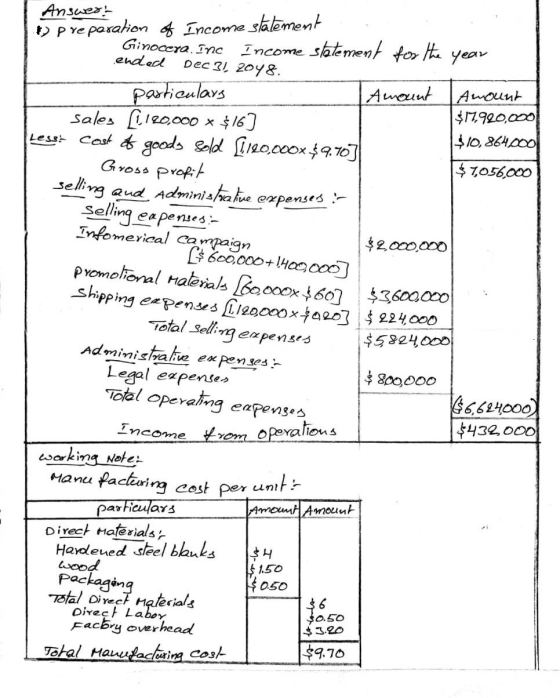 Answer:-
1) Preparation of Income statement
Ginocera. Inc Income statement for the year
ended Dec 31, 2048.
particulars Amount Amount
Sales [1,120,000 x $16] $17,920,000
Less:- Cost of goods Sold [1,120,000x$9.70] $10,864,000
Gross profit $7,056,000
selling and Administrative expenses :-
Selling expenses:-
Infomerical Campaign $2,000,000
[$600,000+1,400,000]
promotional Materials [60,000x$60] $3,600,000
Shipping expenses [1,120,000x$0.20] $224,000
Total Selling expenses $5,824,000
Administrative expenses:-
Legal expenses $800,000
Total Operating expenses ($6,624,000)
Income from operations $432,000
Working Note:-
Manufacturing cost per unit:-
particulars Amount Amount
Direct Materials:-
Hardened steel blanks $4
wood $1.50
Packaging $0.50
Total Direct Materials $6
Direct Labor $0.50
Factory overhead $3.20
Total Manufacturing Cost $9.70